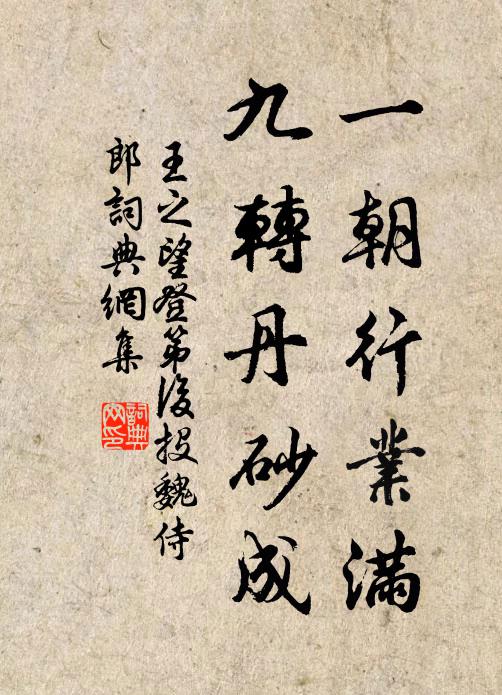 一朝行業滿
九轉丹砂成
王之望登第後投魏侍
郎詞典網集
詞典网印